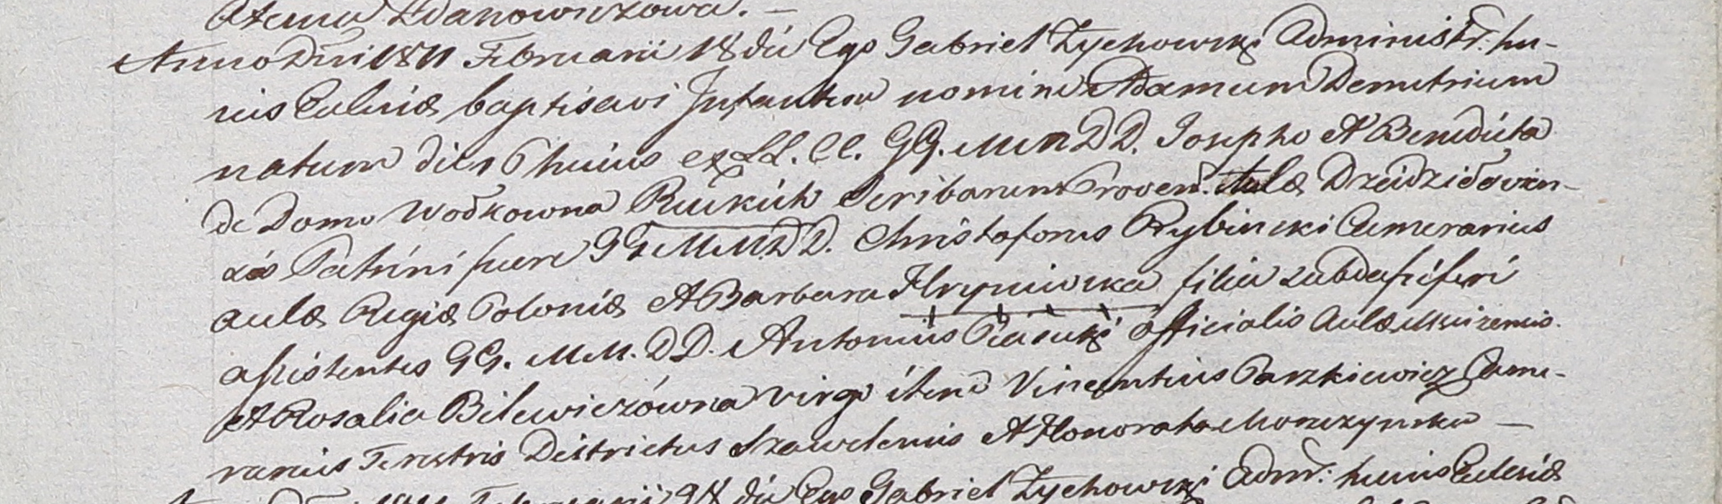 Zdanowiczowa. —
Anno Dni 1811 Februarii 18 die Ego Gabriel Zychowski Administr. hu-
ius Eclesiæ baptisavi Infantem nomine Adamum Demetrium
natum die huius ex LL. CC. GG. MM DD. Josepho et Benedicta
de Domo Wołkowna Scribarum Proven. Aulæ
Patrini fuere GG MM DD. Christoforus Rybinski Camerarius
aulæ Regiæ Poloniæ et Barbara Hryniewska filia
assistentes GG. MM. DD. Antonius officialis Aulæ
et Rosalia Bilewiczówna virgo item Vincentius Paszkiewicz Came-
rarius Terestris Districtus Szavelensis et Honorata Morczynska —
Februarii 28 die Ego Gabriel Zychowski Admr: huius Eclesiæ